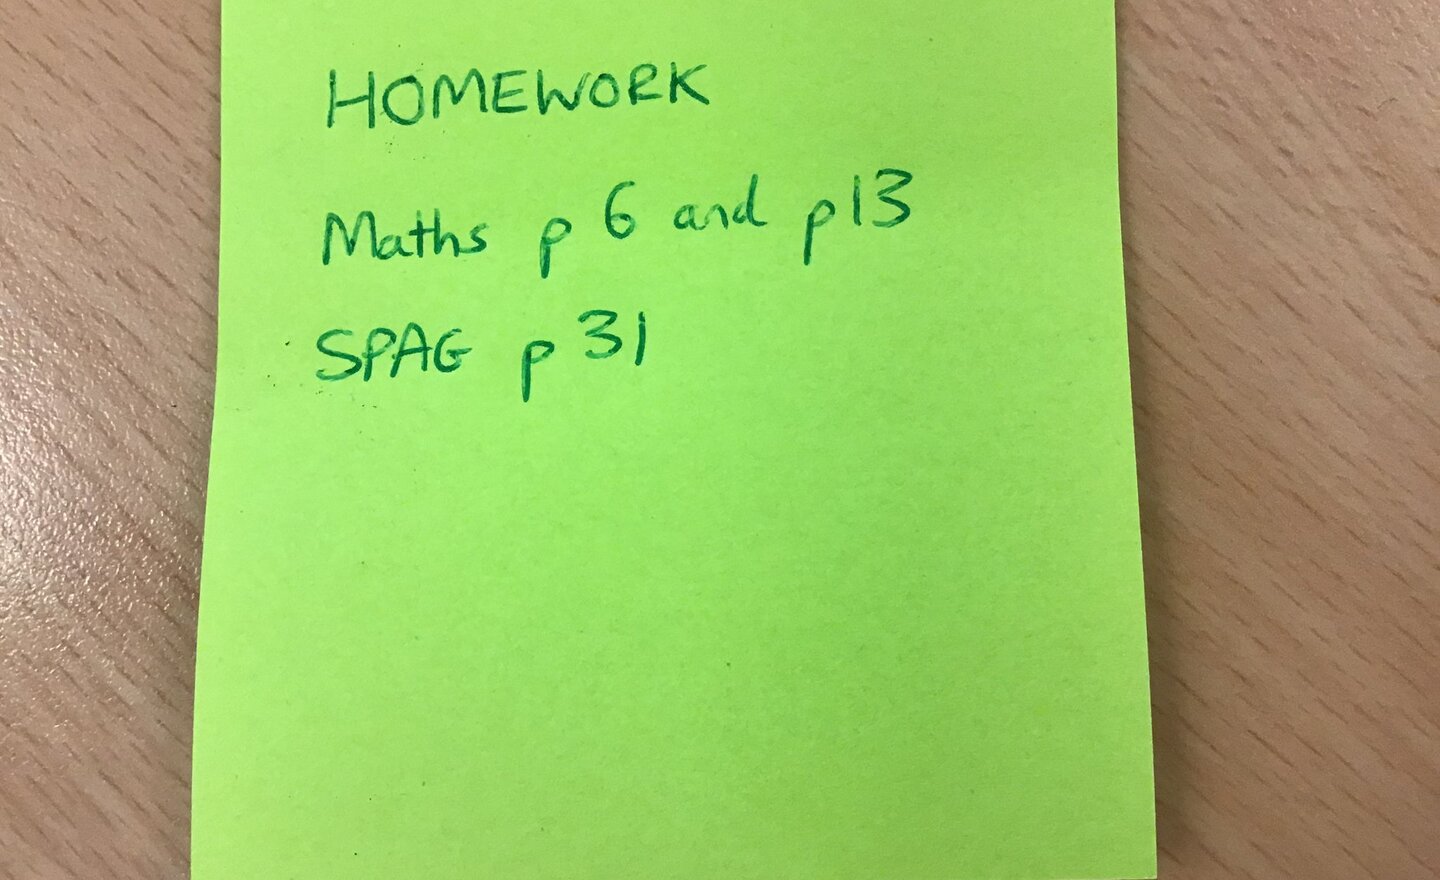 HOMEWORK
Maths p 6 and p13
SPAG p 31